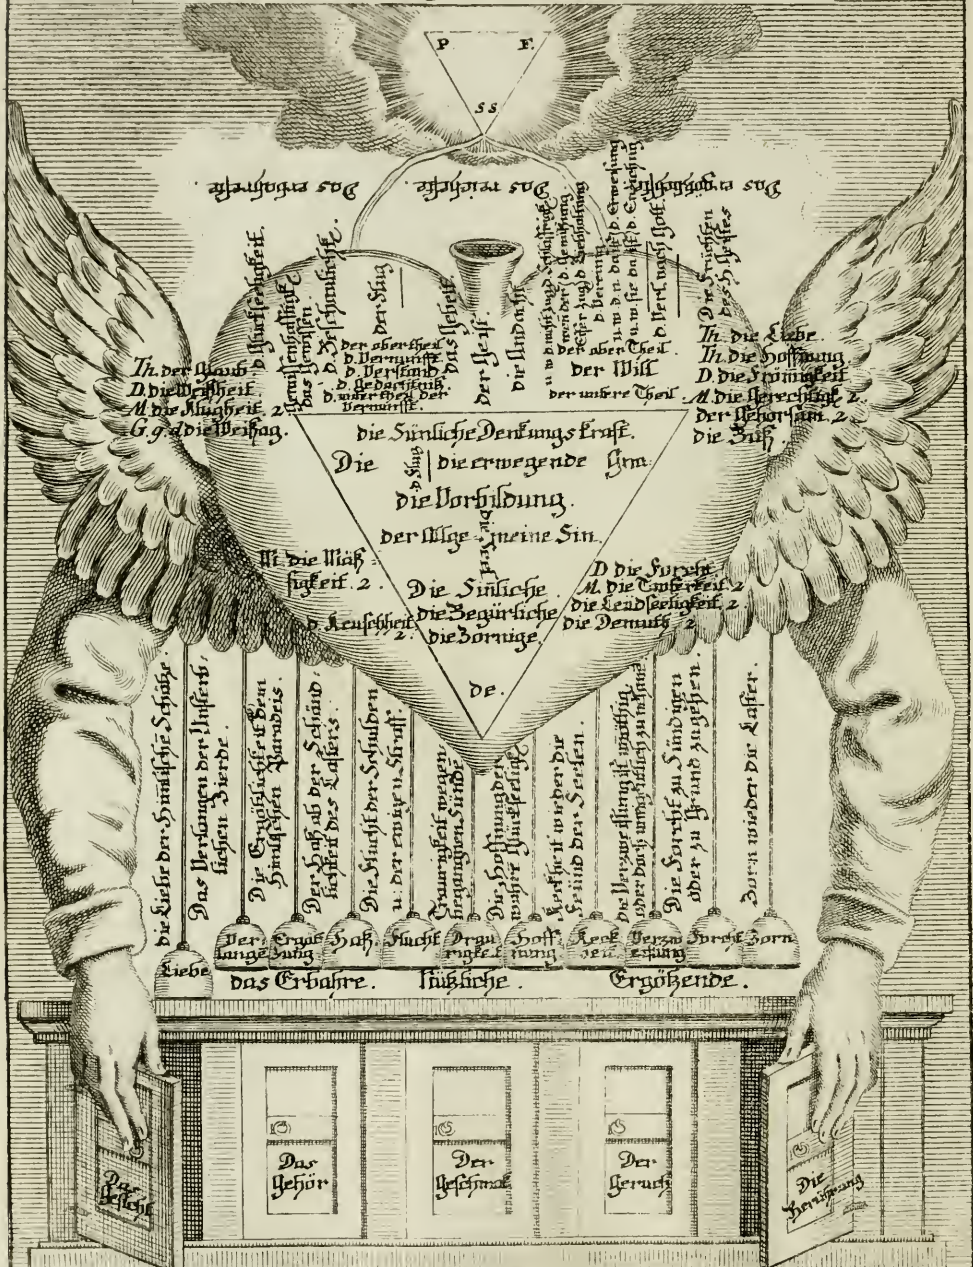 P F.
SS
Das erbahreste
Das reicheste
Das ergötzlichste
d. Glückseeligkeit.
das Gewissen.
der Flug
das Gebett
der Geist.
die Andacht
d. Verl. nach Gott.
Die Früchten
des H. Geistes
der obertheil
d. Vernunfft
d. Verstand
d. Gedächtniß.
d. unter theil der
Vernunfft.
der ober Theil.
der Will
der untere Theil.
Th. der Glaub
D. die Weißheit.
M. die Klugheit. 2
G. g. d die Weißag.
Th. die Liebe.
Th. die Hoffnung
D. die Frömigkeit
M. die Gerechtigk. 2.
der Gehorsam. 2.
die Buß.
die Sünliche Denkungs krafft.
Die d. Flug die erwegende Gna:
die Vorbildung.
der Allge meine Sin.
Die Sinliche
die Begürliche
die Zornige.
de.
M. die Mäß
sigkeit. 2.
d. Keuschheit
2.
D die Forcht
M. die Tapferkeit 2
die Leüdseeligkeit 2.
die Demuth 2
die Liebe der Himlische Schätze.
Das Verlangen der Unsterb:
lichen Zierde.
Die Ergötzlichkeit dem
Himlischen Paradeis.
Der Haß ab der Schänd:
lichkeit des Lasters.
Die Flucht der Schulden
u. der ewigen Straff.
Traurigkeit wegen
begangnen Sünde
Die Hoffnung der
wahre Glückseeligk.
Keckheit wieder die
Feind der Seelen.
die Verzweiflung
Die Forcht zu Sündigen
oder zu Grund zugehen.
Zorn wieder die Laster.
Liebe
Ver:
lange
Ergötz
zung
Haß
Flucht
Trau
rigkeit
Hoff
nung
Keck
heit
Verzw
eiflung
Forcht
Zorn
das Erbahre. Nützliche. Ergötzende.
Das
Gesicht
Das
Gehör
Der
Geschmak
Der
Geruch
Die
Berührung